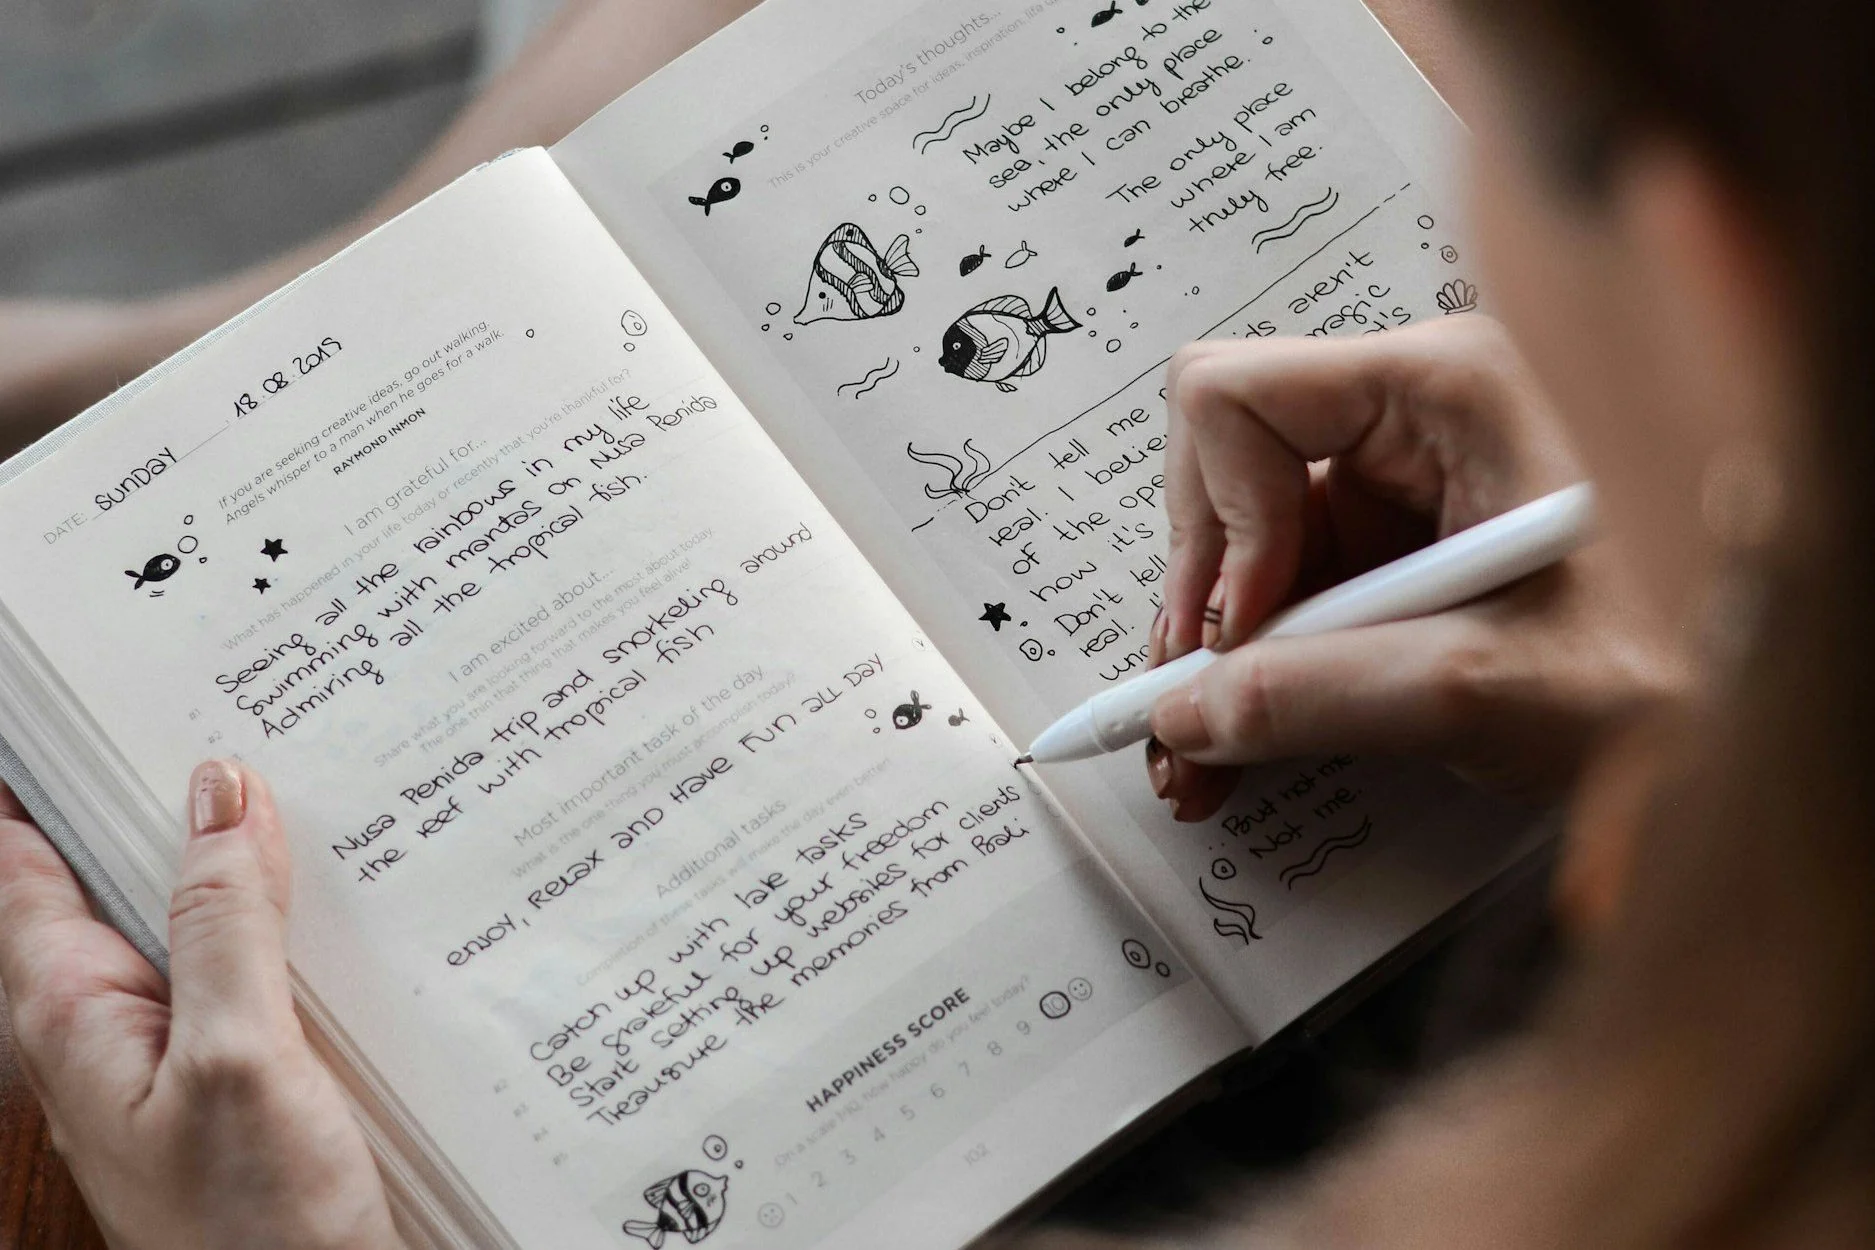 DATE: SUNDAY 18.08.2019
If you are seeking creative ideas, go out walking.
Angels whisper to a man when he goes for a walk.
RAYMOND INMON
I am grateful for...
What has happened in your life today or recently that you're thankful for?
#1 Seeing all the rainbows in my life
#2 Swimming with mantas on Nusa Penida
Admiring all the tropical fish.
I am excited about...
Share what you are looking forward to the most about today.
The one thin that thing that makes you feel alive!
Nusa Penida trip and snorkeling around
the reef with tropical fish
Most important task of the day
What is the one thing you must accomplish today?
ENJOY, RELAX AND HAVE FUN ALL DAY
Additional tasks
Completion of these tasks will make the day even better!
#2 Catch up with late tasks
#3 Be grateful for your freedom
#4 Start setting up websites for clients
#5 Treasure the memories from Bali
HAPPINESS SCORE
On a scale 1-10, how happy do you feel today?
1 2 3 4 5 6 7 8 9 10
102
Today's thoughts...
This is your creative space for ideas, inspiration, life
Maybe I belong to the
sea, the only place
where I can breathe.
The only place
where I am
truly free.
aren't
magic
Don't tell me
real. I
of the
how it's
Don't tell
real.
But not me.
Not me.